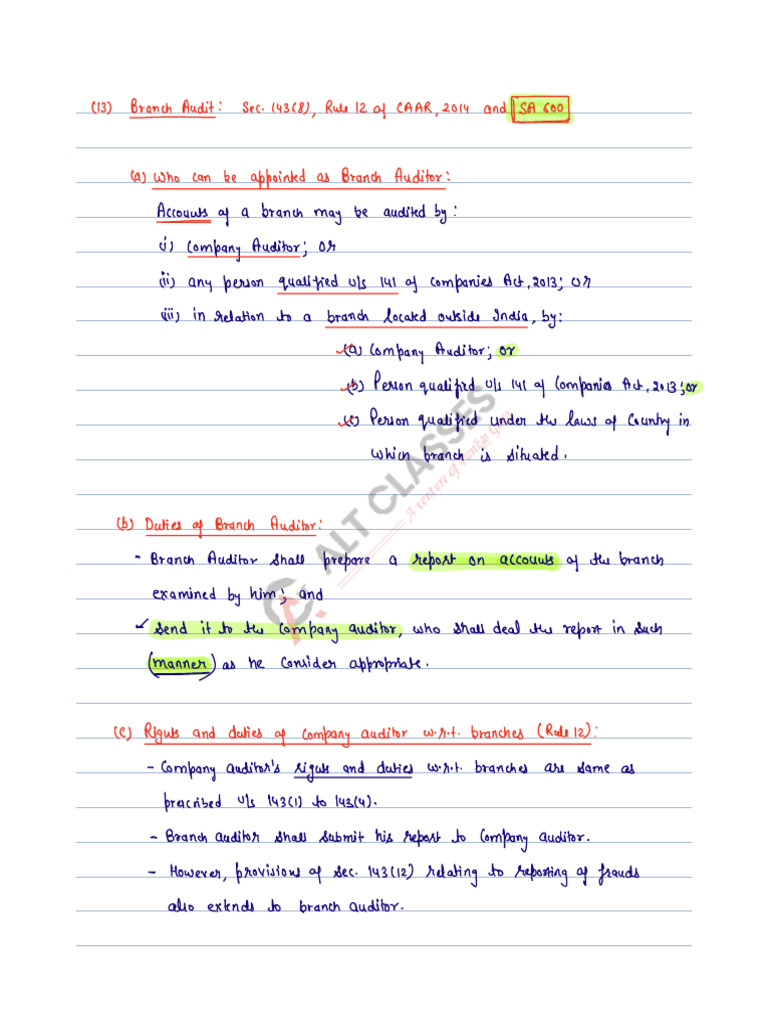 (13) Branch Audit: Sec. 143(8), Rule 12 of CAAR, 2014 and SA 600
(a) Who can be appointed as Branch Auditor:
Accounts of a branch may be audited by:
(i) Company Auditor; or
(ii) any person qualified u/s 141 of Companies Act, 2013; or
(iii) in relation to a branch located outside India, by:
(a) Company Auditor; or
(b) Person qualified u/s 141 of Companies Act, 2013; or
(c) Person qualified under the laws of Country in
which branch is situated.
ALT CLASSES
A venture of Pankaj Garg
(b) Duties of Branch Auditor:
- Branch Auditor shall prepare a report on accounts of the branch
examined by him; and
✓ Send it to the company auditor, who shall deal the report in such
(manner) as he consider appropriate.
(c) Rights and duties of company auditor w.r.t. branches (Rule 12):
- Company auditor's rights and duties w.r.t. branches are same as
prescribed u/s 143(1) to 143(4).
- Branch auditor shall submit his report to Company auditor.
- However, provisions of sec. 143(12) relating to reporting of frauds
also extends to branch auditor.